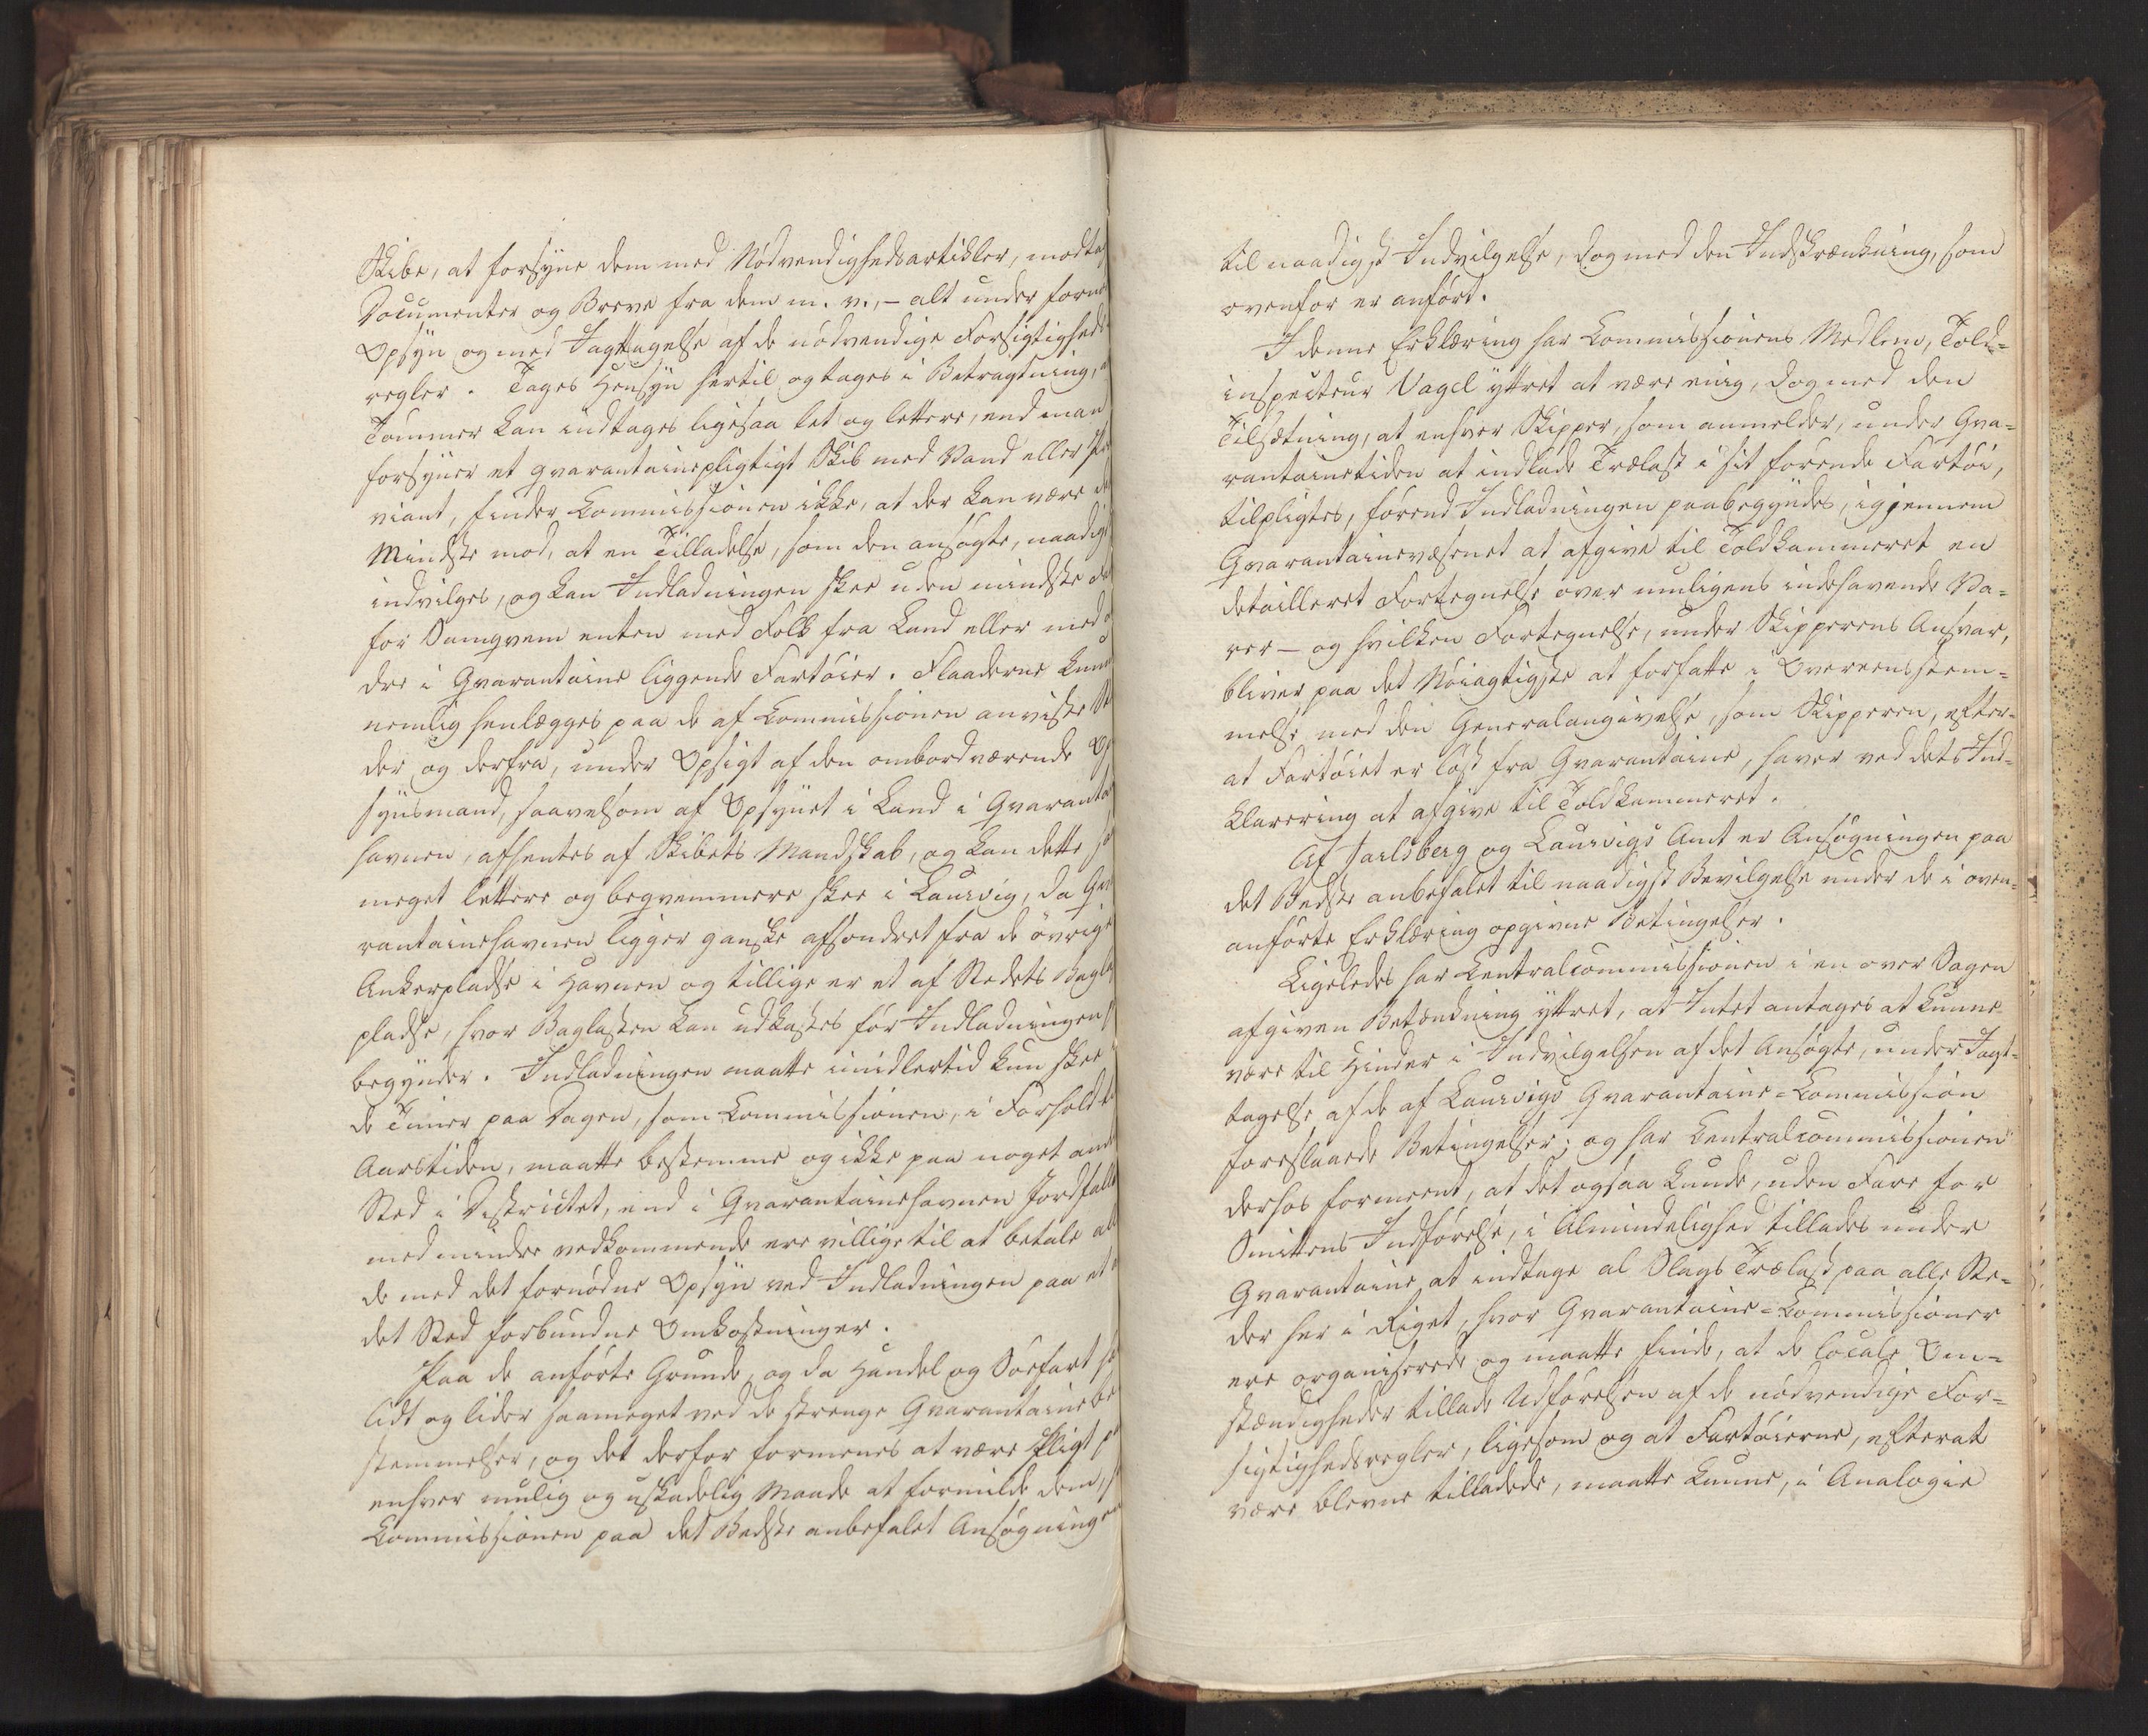 Skibe, at forsyne dem med Nödvendighedsartikler, modta
Documenter og Breve fra dem m. v., – alt under forn
Opsyn og med Iagttagelse af de nödvendige Forsigtigheds
regler. Tages Hensyn hertil og tages i Betragtning,
Tömmer kan indtages ligesaa let og lettere, end man
forsyner et qvarantainepligtigt Skib med Vand eller
viant, finder Commissionen ikke, at der kan være
Mindste mod, at en Tilladelse, som den ansögte, naadig
indvilges, og kan Indladningen skee uden mindste
for Samqvem enten med Folk fra Land eller med
dre i Qvarantaine liggende Fartöier. Flaaderne kun
nemlig henlægges paa de af Commissionen anviste
der og derfra, under Opsigt af den ombordværende Op
synsmand, saavelsom af Opsynet i Land i Qvaranta
havnen, afhentes af Skibets Mandskab, og kan dette
meget lettere og beqvemmere skee i Laurvig, da Qva
rantainehavnen ligger ganske afsondret fra de övrige
Ankerpladse i Havnen og tillige er et af Stedets Bagla
pladse, hvor Baglasten kan udkastes för Indladningen
begynder. Indladningen maatte imidlertid kun skee
de Timer paa Dagen, som Commissionen, i Forhold til
Aarstiden, maatte bestemme og ikke paa noget andet
Sted i Districtet, end i Qvarantainehavnen Jordfald
med mindre vedkommende ere villige til at betale al
de med det fornödne Opsyn ved Indladningen paa et
det Sted forbundne Omkostninger.
Paa de anförte Grunde, og da Handel og Söefart
lidt og lider saameget ved de strenge Qvarantainebe
stemmelser, og det derfor formenes at være Pligt
enhver mulig og uskadelig Maade at formilde dem,
Commissionen paa det Bedste anbefalet Ansögningen
til naadigst Indvilgelse, dog med den Indskrænkning, som
ovenfor er anfört.
I denne Erklæring har Commissionens Medlem, Told-
inspecteur Vagel yttret at være enig, dog med den
Tilsætning, at enhver Skipper, som anmelder, under Qva-
rantainetiden at indlade Trælast i sit förende Fartöi,
tilpligtes, förend Indladningen paabegyndes, igjennem
Qvarantainevæsenet at afgive til Toldkammeret en
detailleret Fortegnelse over muligens indehavende Va-
rer – og hvilken Fortegnelse, under Skipperens Ansvar,
bliver paa det Nöiagtigste at forfatte i Overeensstem-
melse med den Generalangivelse, som Skipperen, efter-
at Fartöiet er löst fra Qvarantaine, haver ved dets Ind-
klarering at afgive til Toldkammeret.
Af Jarlsberg og Laurvigs Amt er Ansögningen paa
det Bedste anbefalet til naadigst Bevilgelse under de i oven-
anförte Erklæring opgivne Betingelser.
Ligeledes har Centralcommissionen i en over Sagen
afgiven Betænkning yttret, at Intet antages at kunne
være til Hinder i Indvilgelsen af det Ansögte, under Iagt-
tagelse af de af Laurvigs Qvarantaine-Commission
foreslaaede Betingelser; og har Centralcommissionen
derhos formeent, at det ogsaa kunde, uden Fare for
Smittens Indförelse, i Almindelighed tillades under
Qvarantaine at indtage al Slags Trælast paa alle Ste-
der her i Riget, hvor Qvarantaine-Commissioner
ere organiserede og maatte finde, at de locale Om-
stændigheder tillade Udförelsen af de nödvendige For-
sigtighedsregler, ligesom og at Fartöierne, efterat
være blevne tilladede, maatte kunne, i Analogie